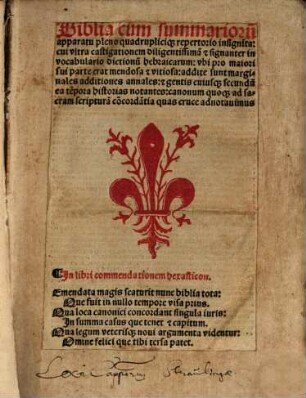 Biblia cum summariorū
apparatu pleno quadrupliciqꝫ repertorio insignita:
cui vltra castigationem diligentissimā & signanter in
vocabulario dictionū hebraicarum: vbi pro maiori
sui parte erat mendosa & vitiosa: addite sunt margi-
nales additiones annales: & gentis cuiusqꝫ secundū
ea tēpora historias notantes: canonum quoqꝫ ad sa-
cram scripturā cōcordātia quas cruce adnotauimus
In libri commendationem hexasticon.
Emendata magis scaturit nunc biblia tota:
Que fuit in nullo tempore visa prius.
Qua loca canonici concordant singula iuris:
In summa casus que tenet & capitum.
Qua legum veterisqꝫ noui argumenta videntur:
Omine felici que tibi tersa patet.